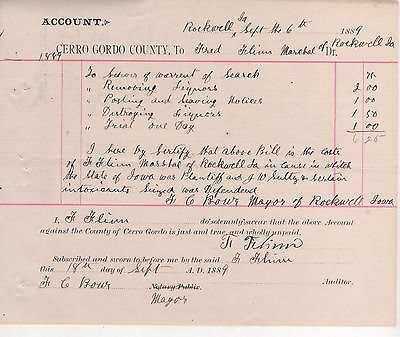 ACCOUNT.
Rockwell, Ia Sept the 6th 1889
CERRO GORDO COUNTY, To Fred Flinn Marshal of Rockwell Ia Dr.
1889
To Servis of warrent of Search 75
" Removing Liquors 2 00
" Posting and leaving Notices 1 00
" Destroying Liquors 1 50
" Trial one Day 1 00
6 25
I here by Sertify that above Bill is the Costs
of F Flinn Marshal of Rockwell Ia in cause in which
the State of Iowa was Plantiff and J W & certain
intoxicants Seized was Defendend
F C Bour Mayor of Rockwell Iowa
I, F Flinn do solemnly swear that the above Account
against the County of Cerro Gordo is just and true, and wholly unpaid.
F Flinn
Subscribed and sworn to before me by the said F Flinn
this 18th day of Sept A. D. 1889
F C Bour Notary Public. Auditor.
Mayor